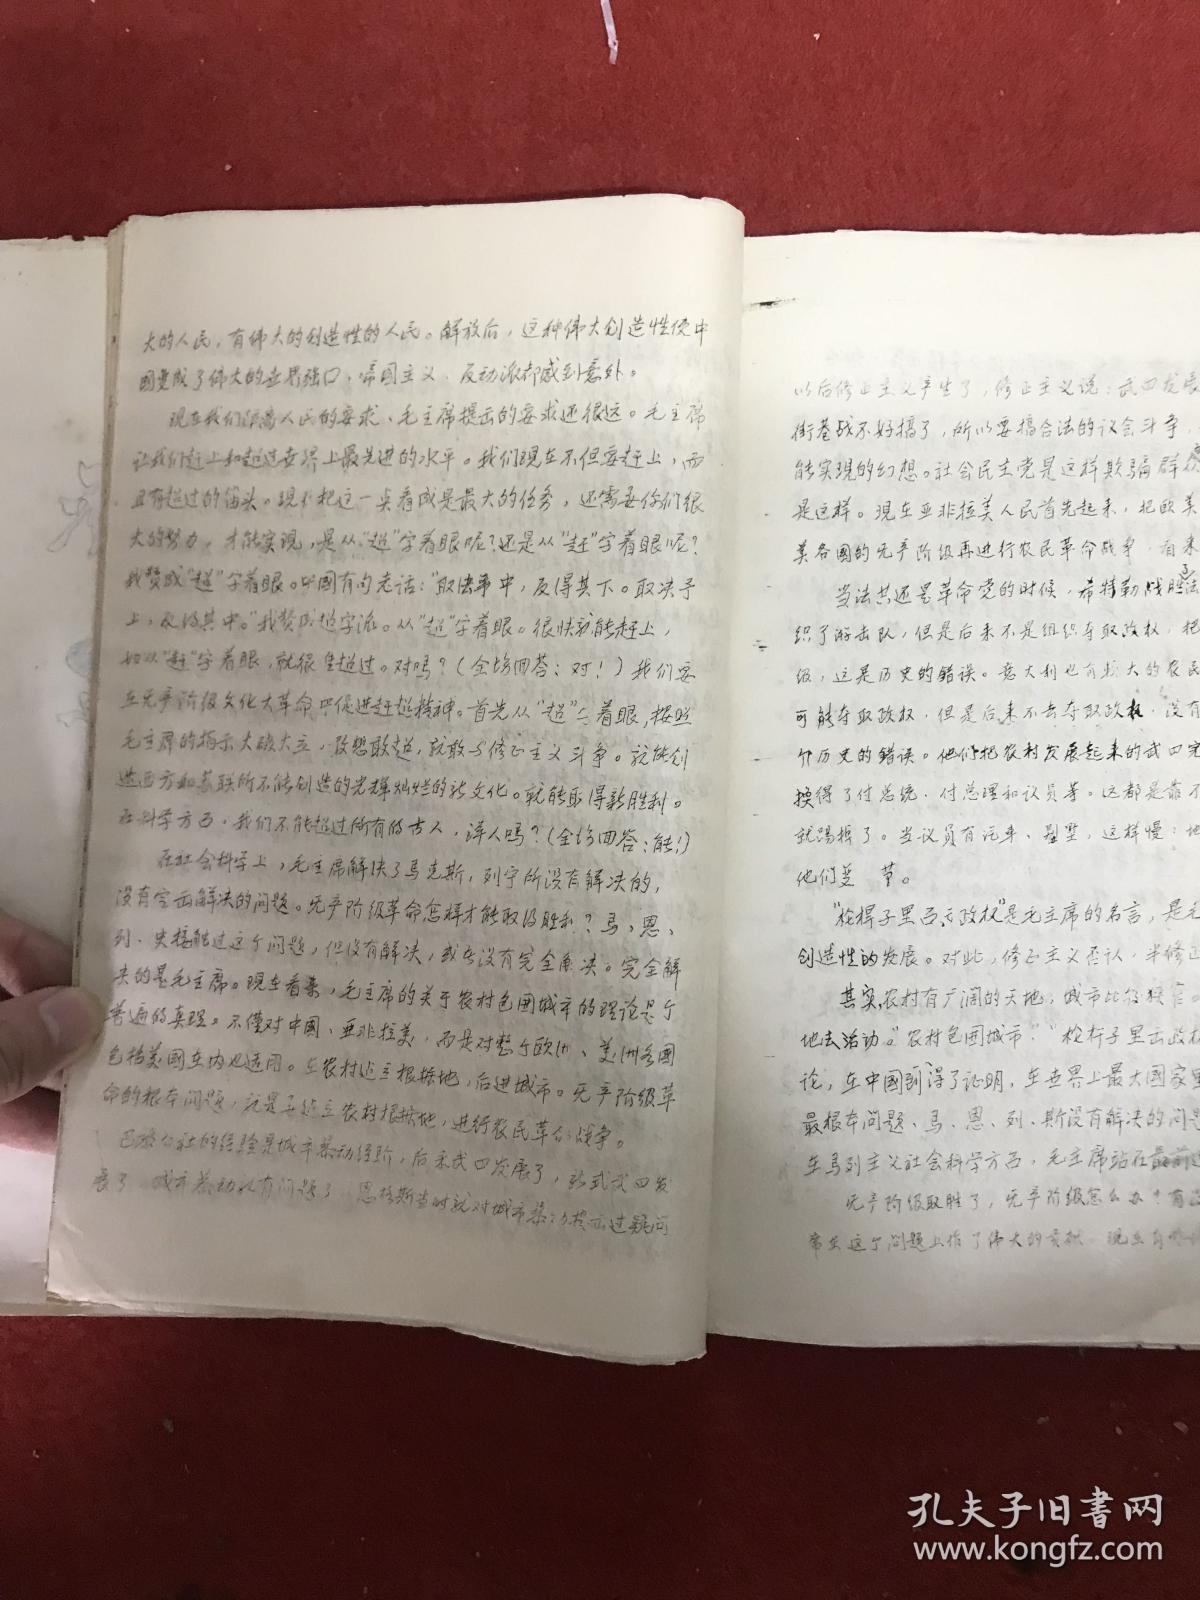 大的人民，有伟大的创造性的人民。解放后，这种伟大创造性使中
国变成了伟大的世界强口，帝国主义、反动派都感到意外。
现在我们距离人民的要求、毛主席提出的要求还很远。毛主席
让我们赶上和超过世界上最先进的水平。我们现在不但要赶上，而
且有超过的苗头。现不把这一点看成是最大的任务，还需要你们很
大的努力，才能实现，是从“超”字着眼呢？还是从“赶”字着眼呢？
我赞成“超”字着眼。中国有句老话：“取法乎中，反得其下。取决予
上，反得其中。”我赞成超字派。从“超”字着眼。很快就能赶上，
如从“赶”字着眼，就很难超过。对吗？（全场回答：对！）我们要
在无产阶级文化大革命中促进赶超精神。首先从“超”字着眼，按照
毛主席的指示大破大立，敢想敢超，就敢与修正主义斗争。就能创
造西方和苏联所不能创造的光辉灿烂的新文化。就能取得新胜利。
在科学方面，我们不能超过所有的古人，洋人吗？（全场回答：能！）
在社会科学上，毛主席解决了马克斯，列宁所没有解决的，
没有完全解决的问题。无产阶级革命怎样才能取得胜利？马，恩、
列、史接触过这个问题，但没有解决，或者没有完全解决。完全解
决的是毛主席。现在看来，毛主席的关于农村包围城市的理论是个
普遍的真理。不僅对中國、亚非拉美，而是对整个欧州、美州各國
包括美国在内也适用。在农村建立根据地，后进城市。无产阶级革
命的根本问题，就是要建立农村根据地，进行农民革命战争。
巴黎公社的经验是城市暴动经验，后来武四发展了，新式武四发
展了，城市暴动就有问题了，恩格斯当时就对城市暴动提出过疑问
以后修正主义产生了，修正主义说：武四发展
街巷战不好搞了，所以要搞合法的议会斗争，
能实现的幻想。社会民主党是这样欺骗群众
是这样。现在亚非拉美人民首先起来，把欧美
美各國的无产阶级再进行农民革命战争，看来
当法共还是革命党的时候，希特勒战胜法
织了游击队，但是后来不是组织夺取政权，把
级，这是历史的错误。意大利也有较大的农民
可能夺取政权，但是后来不去夺取政权，没有
个历史的错误。他们把农村发展起来的武四完
换得了付总统、付总理和议员等。这都是靠不
就踢掉了。当议员有汽车、别墅，这样慢：地
他们
“枪桿子里面出政权”是毛主席的名言，是毛
创造性的发展。对此，修正主义否认，半修正
其实，农村有广阔的天地，城市比较狭窄。
地去活动。“农村包围城市”“枪杆子里出政权
论，在中國到得了证明，在世界上最大国家里
最根本问题、马、恩、列、斯没有解决的问题
在马列主义社会科学方面，毛主席站在最前
无产阶级取胜了，无产阶级怎么办？有没
席在这个问题上作了伟大的贡献。现在有
孔夫子旧书网
www.kongfz.com